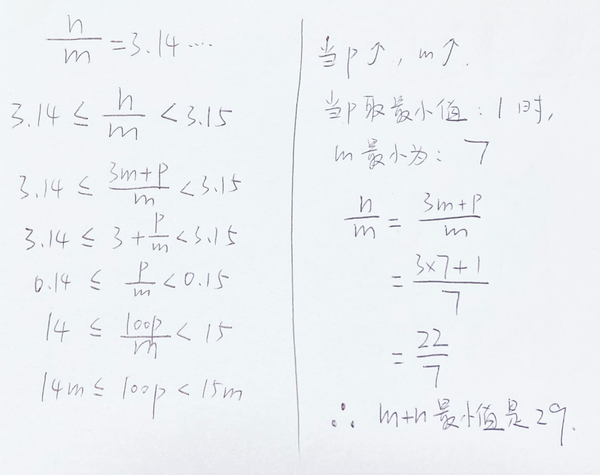 n/m = 3.14····
3.14 ≤ n/m < 3.15
3.14 ≤ (3m+p)/m < 3.15
3.14 ≤ 3 + p/m < 3.15
0.14 ≤ p/m < 0.15
14 ≤ 100p/m < 15
14m ≤ 100p < 15m
当p↑, m↑.
当p取最小值: 1时,
m最小为: 7
n/m = (3m+p)/m
= (3×7+1)/7
= 22/7
∴ m+n最小值是29.